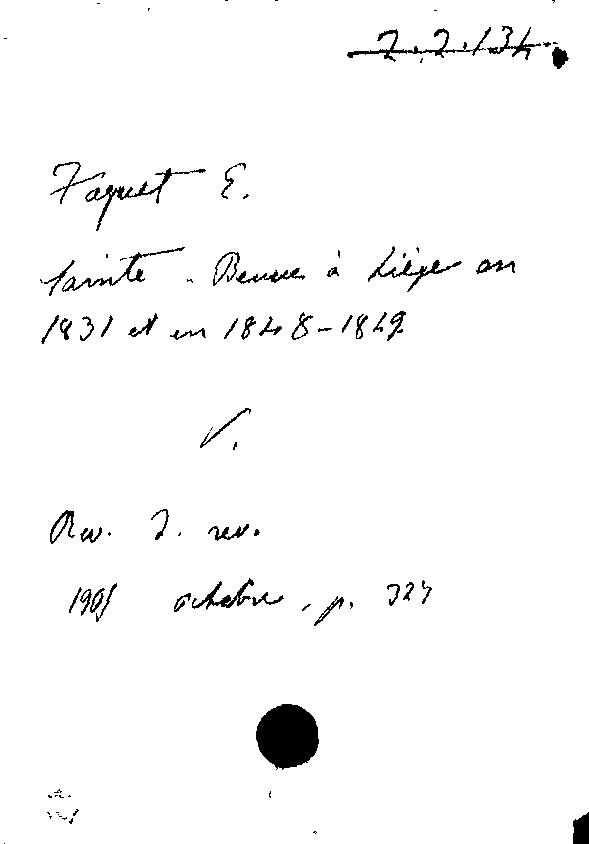 2.2.134
Faguet E.
Sainte-Beuve à Liège en
1831 et en 1848-1849
V.
Rev. d. rev.
1905 octobre, p. 327